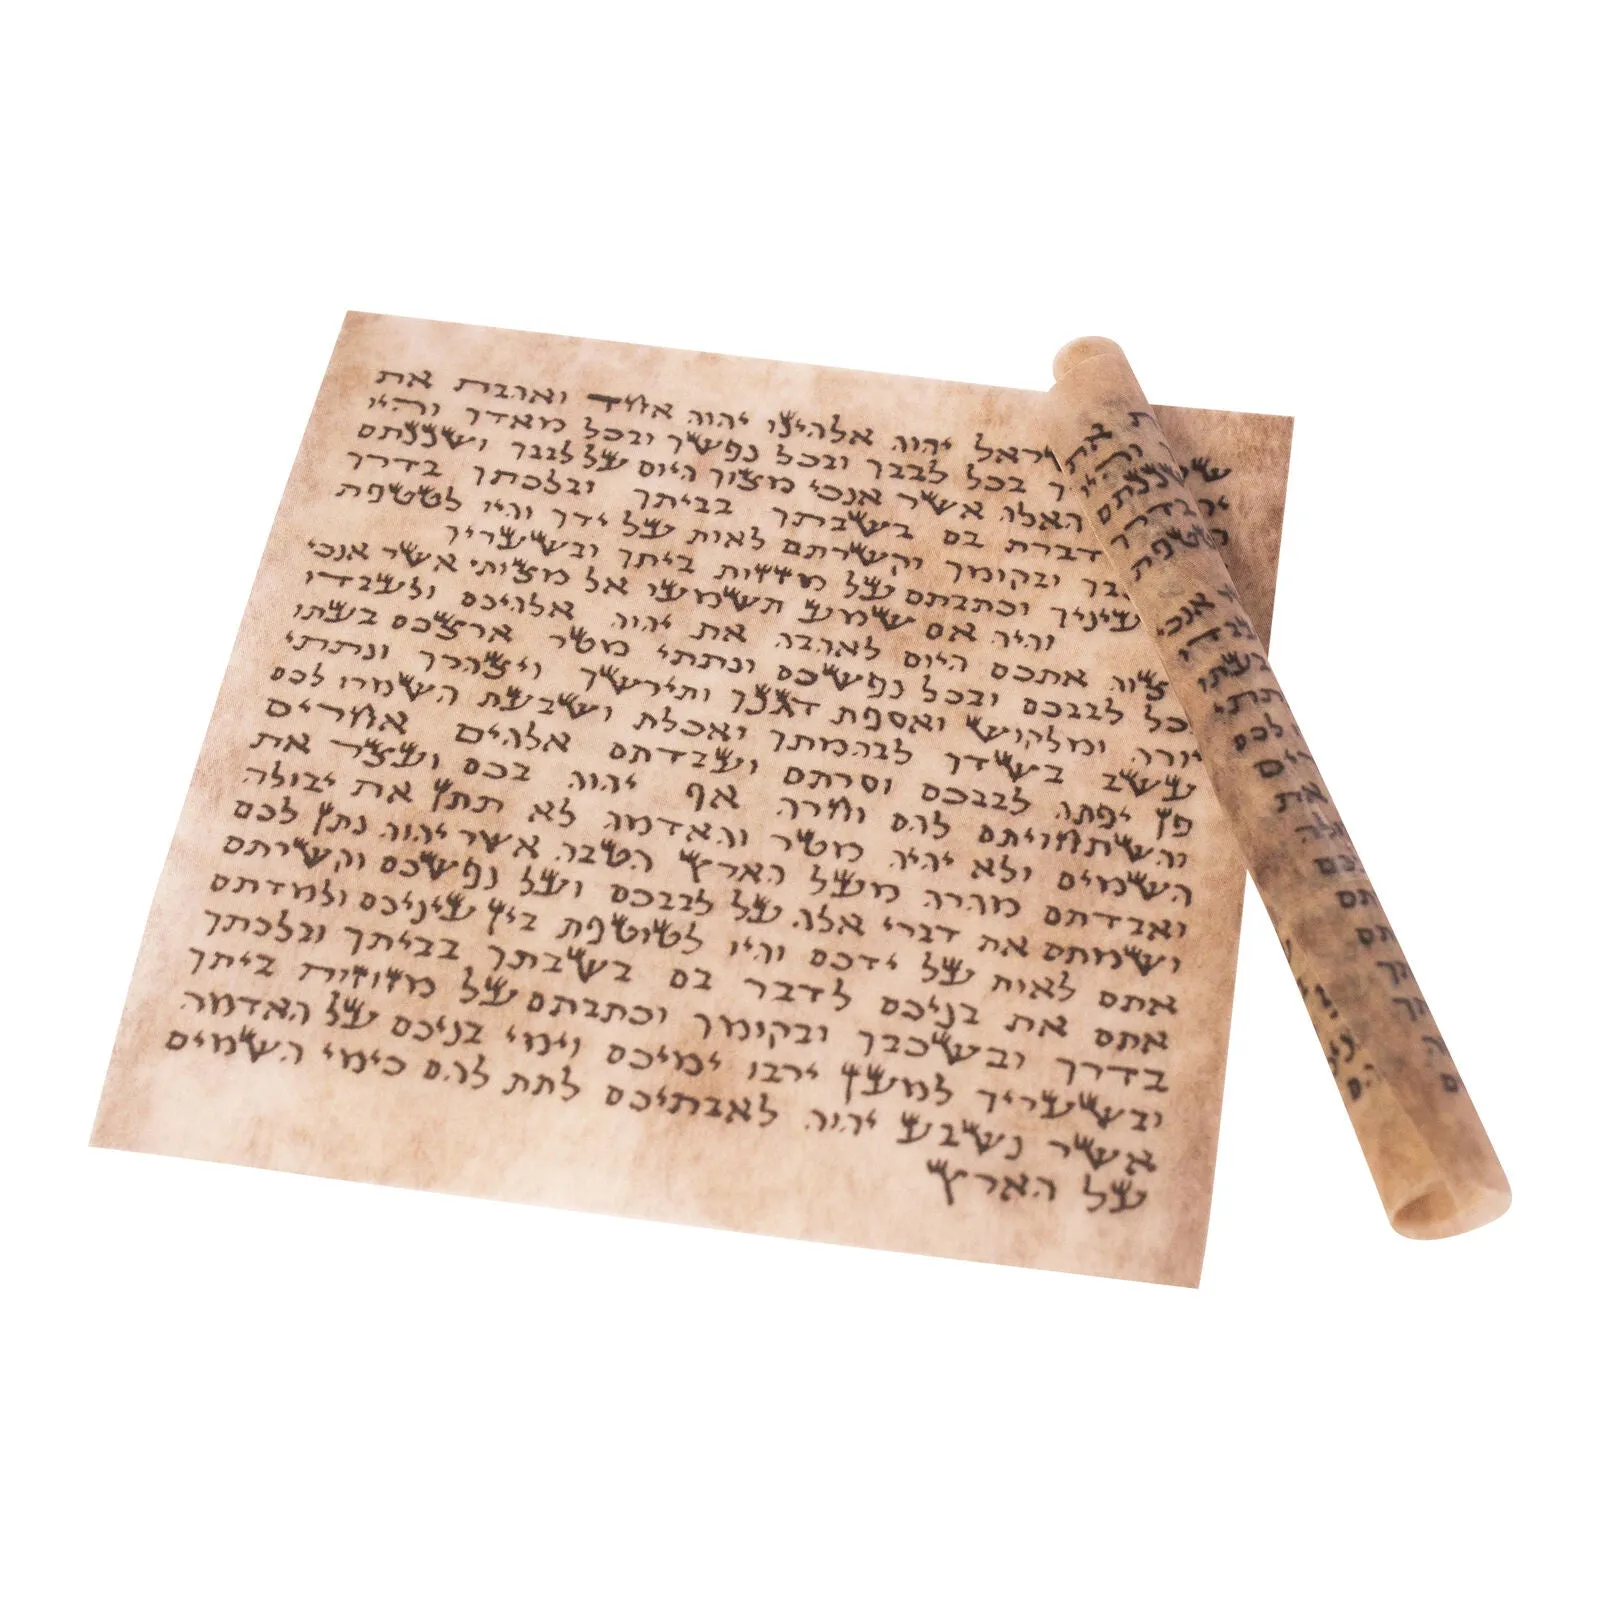 יהוה אלהינו יהוה אחד ואהבת את
בכל לבבך ובכל נפשך ובכל מאדך והיו
האלה אשר אנכי מצוך היום על לבבך ושננתם
דברת בם בשבתך בביתך ובלכתך בדרך
ובקומך וקשרתם לאות על ידך והיו לטטפת
עיניך וכתבתם על מזוזות ביתך ובשעריך
והיה אם שמע תשמעו אל מצותי אשר אנכי
מצוה אתכם היום לאהבה את יהוה אלהיכם ולעבדו
בכל לבבכם ובכל נפשכם ונתתי מטר ארצכם בעתו
יורה ומלקוש ואספת דגנך ותירשך ויצהרך ונתתי
עשב בשדך לבהמתך ואכלת ושבעת השמרו לכם
פן יפתה לבבכם וסרתם ועבדתם אלהים אחרים
והשתחויתם להם וחרה אף יהוה בכם ועצר את
השמים ולא יהיה מטר והאדמה לא תתן את יבולה
ואבדתם מהרה מעל הארץ הטבה אשר יהוה נתן לכם
ושמתם את דברי אלה על לבבכם ועל נפשכם וקשרתם
אתם לאות על ידכם והיו לטוטפת בין עיניכם ולמדתם
אתם את בניכם לדבר בם בשבתך בביתך ובלכתך
בדרך ובשכבך ובקומך וכתבתם על מזוזות ביתך
ובשעריך למען ירבו ימיכם וימי בניכם על האדמה
אשר נשבע יהוה לאבתיכם לתת להם כימי השמים
על הארץ